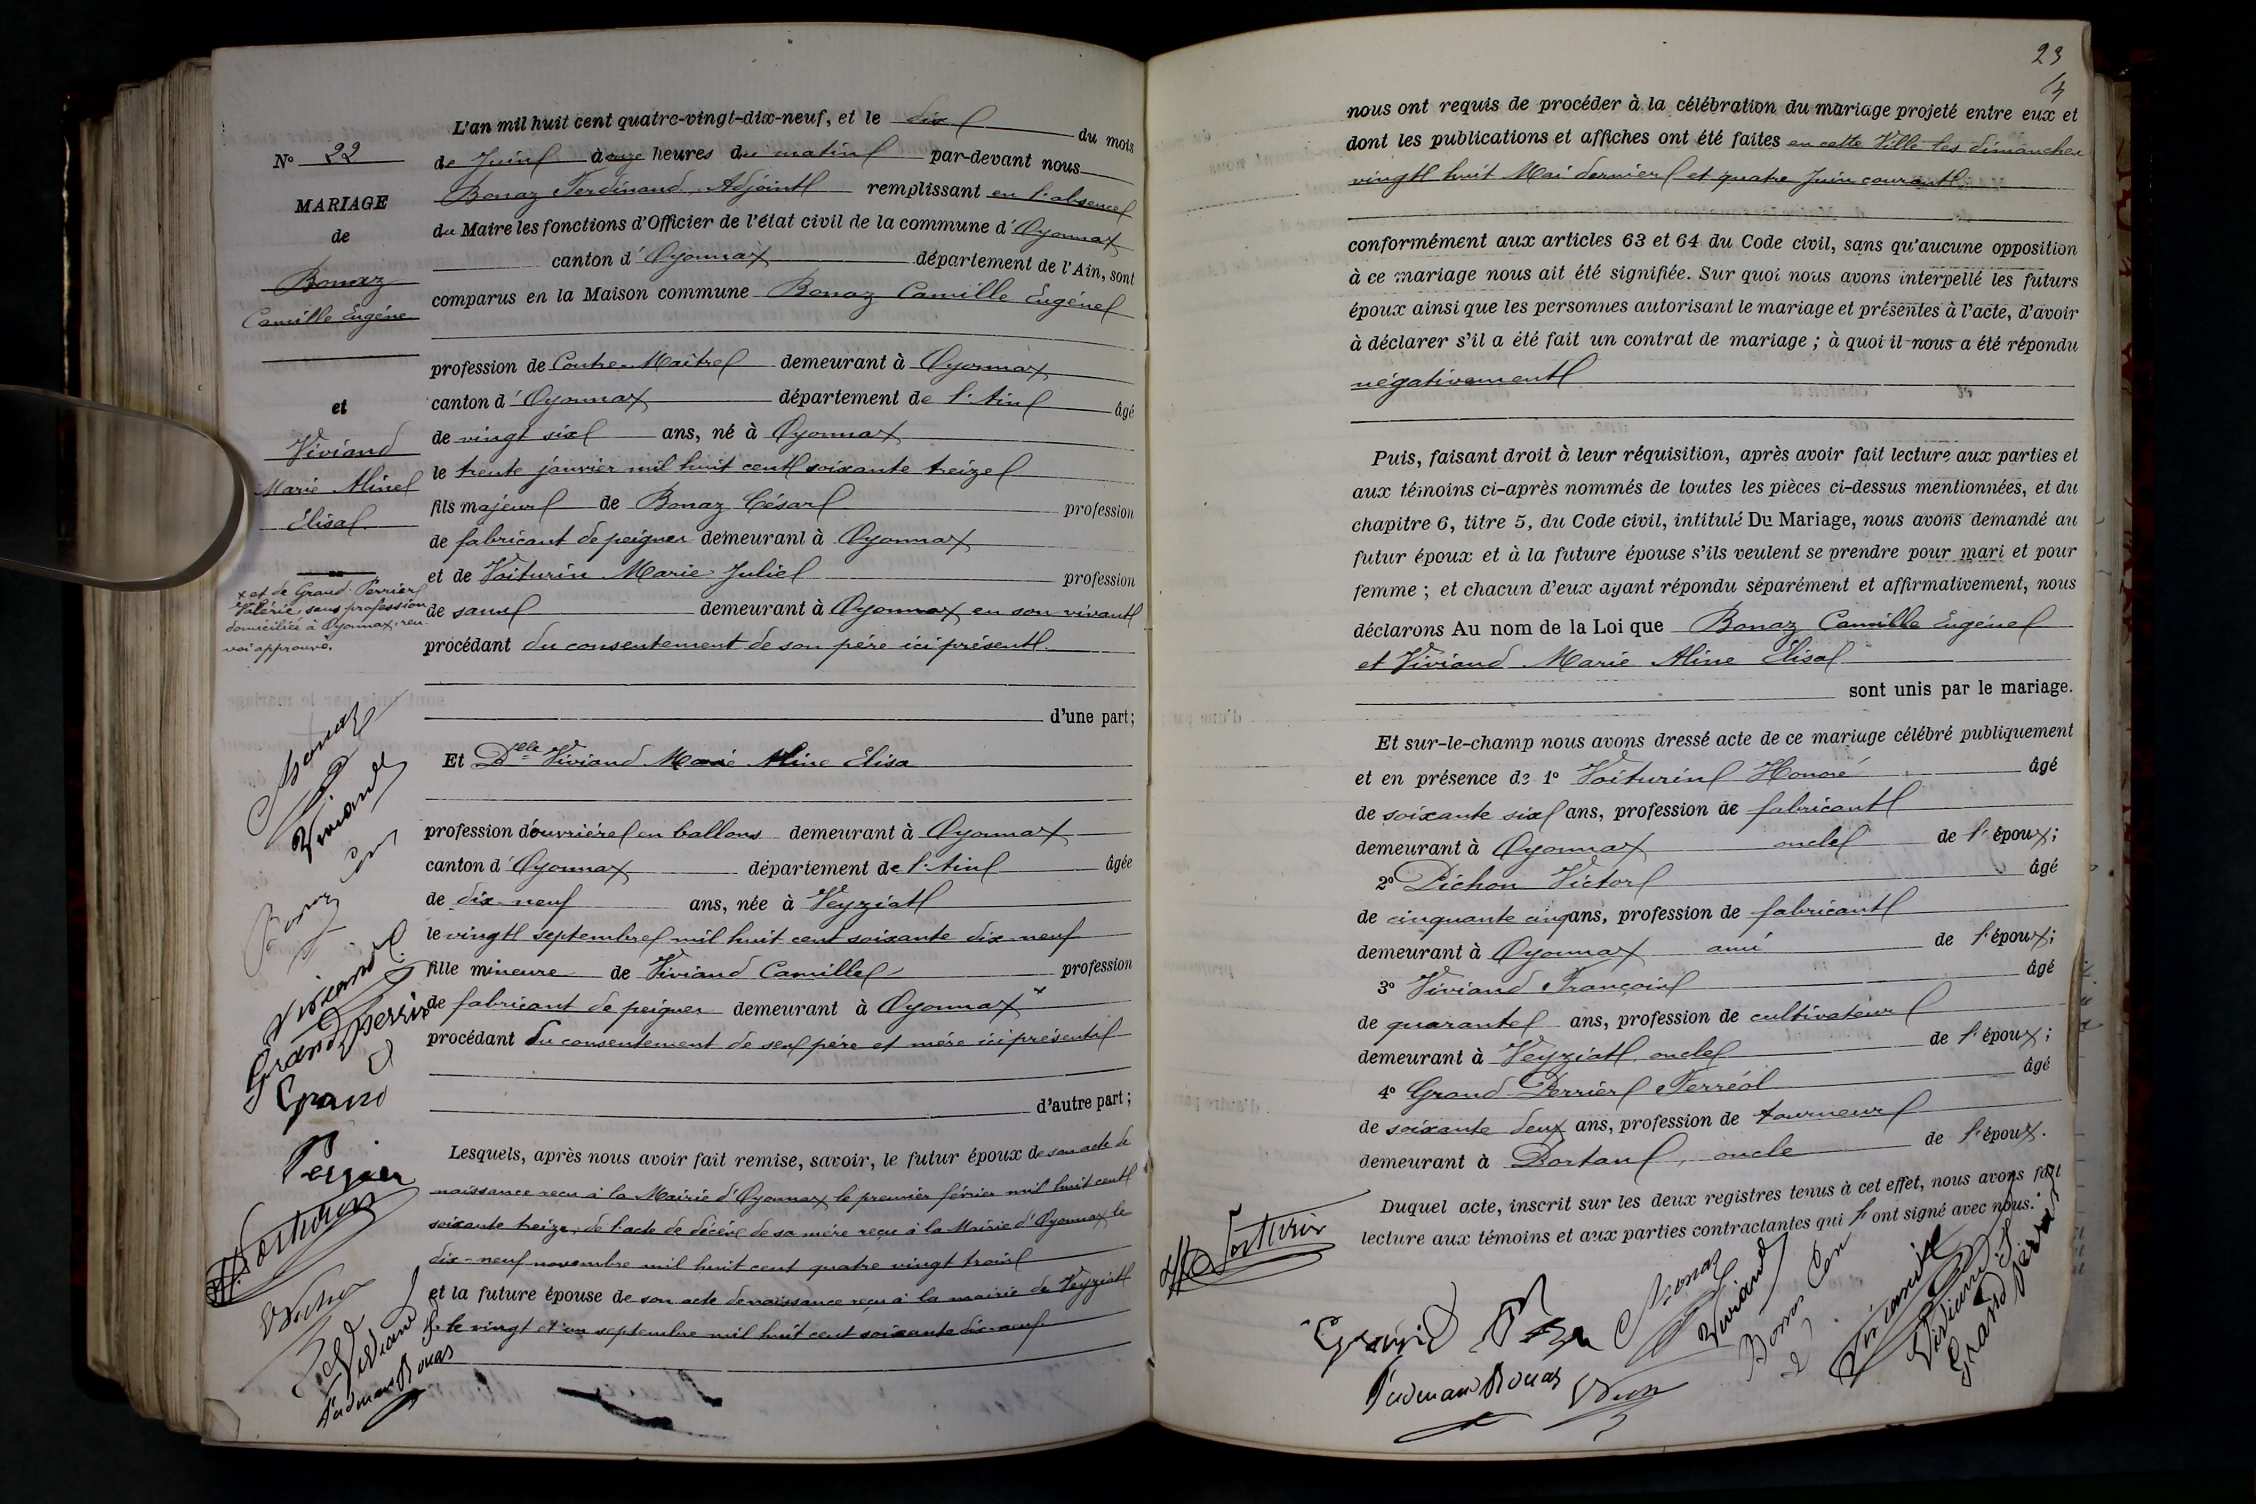 N° 22
MARIAGE
de
Bonaz
Camille Eugène
et
Viviand
Marie Aline
Elisa
x et de Grand-Perrier
Valérie, sans profession
domiciliée à Oyonnax, ren
voi approuvé.
L'an mil huit cent quatre-vingt-dix-neuf, et le dix du mois
de Juin à onze heures du matin par-devant nous
Bonaz Ferdinand, Adjoint remplissant en l'absence
du Maire les fonctions d'Officier de l'état civil de la commune d'Oyonnax
canton d'Oyonnax département de l'Ain, sont
comparus en la Maison commune Bonaz Camille Eugène
profession de Contre-Maître demeurant à Oyonnax
canton d'Oyonnax département de l'Ain âgé
de vingt six ans, né à Oyonnax
le trente janvier mil huit cent soixante treize
fils majeur de Bonaz César profession
de fabricant de peignes demeurant à Oyonnax
et de Voiturin Marie-Julie profession
de sans demeurant à Oyonnax en son vivant
procédant du consentement de son père ici présent.
d'une part;
Et Delle Viviand Marie Aline Elisa
profession d'ouvrière en ballons demeurant à Oyonnax
canton d'Oyonnax département de l'Ain âgée
de dix-neuf ans, née à Veyziat
le vingt septembre mil huit cent soixante dix-neuf
fille mineure de Viviand Camille profession
de fabricant de peignes demeurant à Oyonnax x
procédant du consentement de ses père et mère ici présents
d'autre part;
Lesquels, après nous avoir fait remise, savoir, le futur époux de son acte de
naissance reçu à la Mairie d'Oyonnax le premier février mil huit cent
soixante treize, de l'acte de décès de sa mère reçu à la Mairie d'Oyonnax le
dix-neuf novembre mil huit cent quatre vingt trois
et la future épouse de son acte de naissance reçu à la mairie de Veyziat
le vingt et un septembre mil huit cent soixante dix-neuf
Bonaz
Viviand
Viviand
Grand Perrier
Grand
Voiturin
Viviand
Bonaz
23
nous ont requis de procéder à la célébration du mariage projeté entre eux et
dont les publications et affiches ont été faites en cette Ville les dimanches
vingt huit Mai dernier et quatre Juin courant
conformément aux articles 63 et 64 du Code civil, sans qu'aucune opposition
à ce mariage nous ait été signifiée. Sur quoi nous avons interpellé les futurs
époux ainsi que les personnes autorisant le mariage et présentes à l'acte, d'avoir
à déclarer s'il a été fait un contrat de mariage ; à quoi il nous a été répondu
négativement
Puis, faisant droit à leur réquisition, après avoir fait lecture aux parties et
aux témoins ci-après nommés de toutes les pièces ci-dessus mentionnées, et du
chapitre 6, titre 5, du Code civil, intitulé Du Mariage, nous avons demandé au
futur époux et à la future épouse s'ils veulent se prendre pour mari et pour
femme ; et chacun d'eux ayant répondu séparément et affirmativement, nous
déclarons Au nom de la Loi que Bonaz Camille Eugène
et Viviand Marie Aline Elisa
sont unis par le mariage.
Et sur-le-champ nous avons dressé acte de ce mariage célébré publiquement
et en présence de 1° Voiturin Honoré âgé
de soixante six ans, profession de fabricant
demeurant à Oyonnax oncle de l'époux;
2° Pichon Victor âgé
de cinquante cinq ans, profession de fabricant
demeurant à Oyonnax ami de l'époux;
3° Viviand François âgé
de quarante ans, profession de cultivateur
demeurant à Veyziat oncle de l'époux;
4° Grand-Perrier Ferréol âgé
de soixante deux ans, profession de tourneur
demeurant à Dortan, oncle de l'époux.
Duquel acte, inscrit sur les deux registres tenus à cet effet, nous avons fait
lecture aux témoins et aux parties contractantes qui l'ont signé avec nous.
Voiturin
Grand
Bonaz
Viviand
Viviand
Grand Perrier
Bonaz